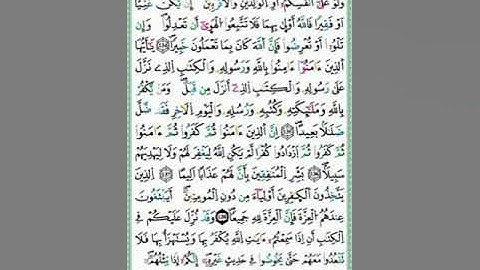 وَلَوْ عَلَىٰ أَنفُسِكُمُ أَوِ الْوَالِدَيْنِ وَالَاقْرَبِينَ إِنْ يَكُنْ غَنِيًّا
أَوْ فَقِيرًا فَاللَّهُ أَوْلَىٰ بِهِمَا فَلَا تَتَّبِعُوا الْهَوَىٰ أَن تَعْدِلُوا وَإِن
تَلْوُوا أَوْ تُعْرِضُوا فَإِنَّ اللَّهَ كَانَ بِمَا تَعْمَلُونَ خَبِيرًا يَٰأَيُّهَا
الذِينَ ءَامَنُوا ءَامِنُوا بِاللَّهِ وَرَسُولِهِ وَالْكِتَٰبِ الذِي نَزَّلَ
عَلَىٰ رَسُولِهِ وَالْكِتَٰبِ الذِي أَنزَلَ مِن قَبْلُ وَمَنْ يَكْفُرْ
بِاللَّهِ وَمَلَٰئِكَتِهِ وَكُتُبِهِ وَرُسُلِهِ وَالْيَوْمِ الَاخِرِ فَقَد ضَّلَّ
ضَلَٰلًا بَعِيدًا إِنَّ الذِينَ ءَامَنُوا ثُمَّ كَفَرُوا ثُمَّ ءَامَنُوا
ثُمَّ كَفَرُوا ثُمَّ ازْدَادُوا كُفْرًا لَّمْ يَكُنِ اللَّهُ لِيَغْفِرَ لَهُمْ وَلَا لِيَهْدِيَهُمْ
سَبِيلًا بَشِّرِ الْمُنَٰفِقِينَ بِأَنَّ لَهُمْ عَذَابًا أَلِيمًا الذِينَ
يَتَّخِذُونَ الْكَٰفِرِينَ أَوْلِيَاءَ مِن دُونِ الْمُومِنِينَ أَيَبْتَغُونَ
عِندَهُمُ الْعِزَّةَ فَإِنَّ الْعِزَّةَ لِلهِ جَمِيعًا وَقَدْ نُزِّلَ عَلَيْكُمْ فِي
الْكِتَٰبِ أَنِ اذَا سَمِعْتُمُ ءَايَٰتِ اللَّهِ يُكْفَرُ بِهَا وَيُسْتَهْزَأُ بِهَا فَلَا
تَقْعُدُوا مَعَهُمْ حَتَّىٰ يَخُوضُوا فِي حَدِيثٍ غَيْرِهِ إِنَّكُمُ إِذًا مِّثْلُهُمُ